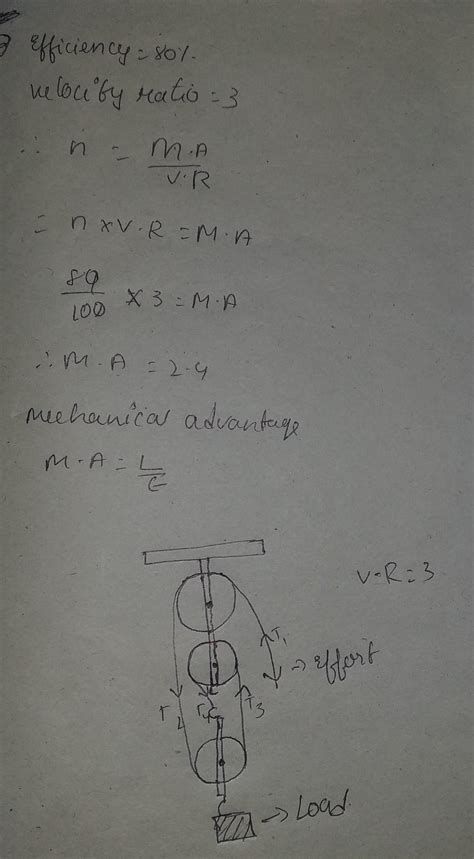 efficiency = 80%.
velocity ratio = 3
∴ n = M.A / V.R
= n × V.R = M.A
80/100 × 3 = M.A
∴ M.A = 2.4
Mechanical advantage
M.A = L/E
V.R = 3
T1
→ effort
T2
T3
→ Load